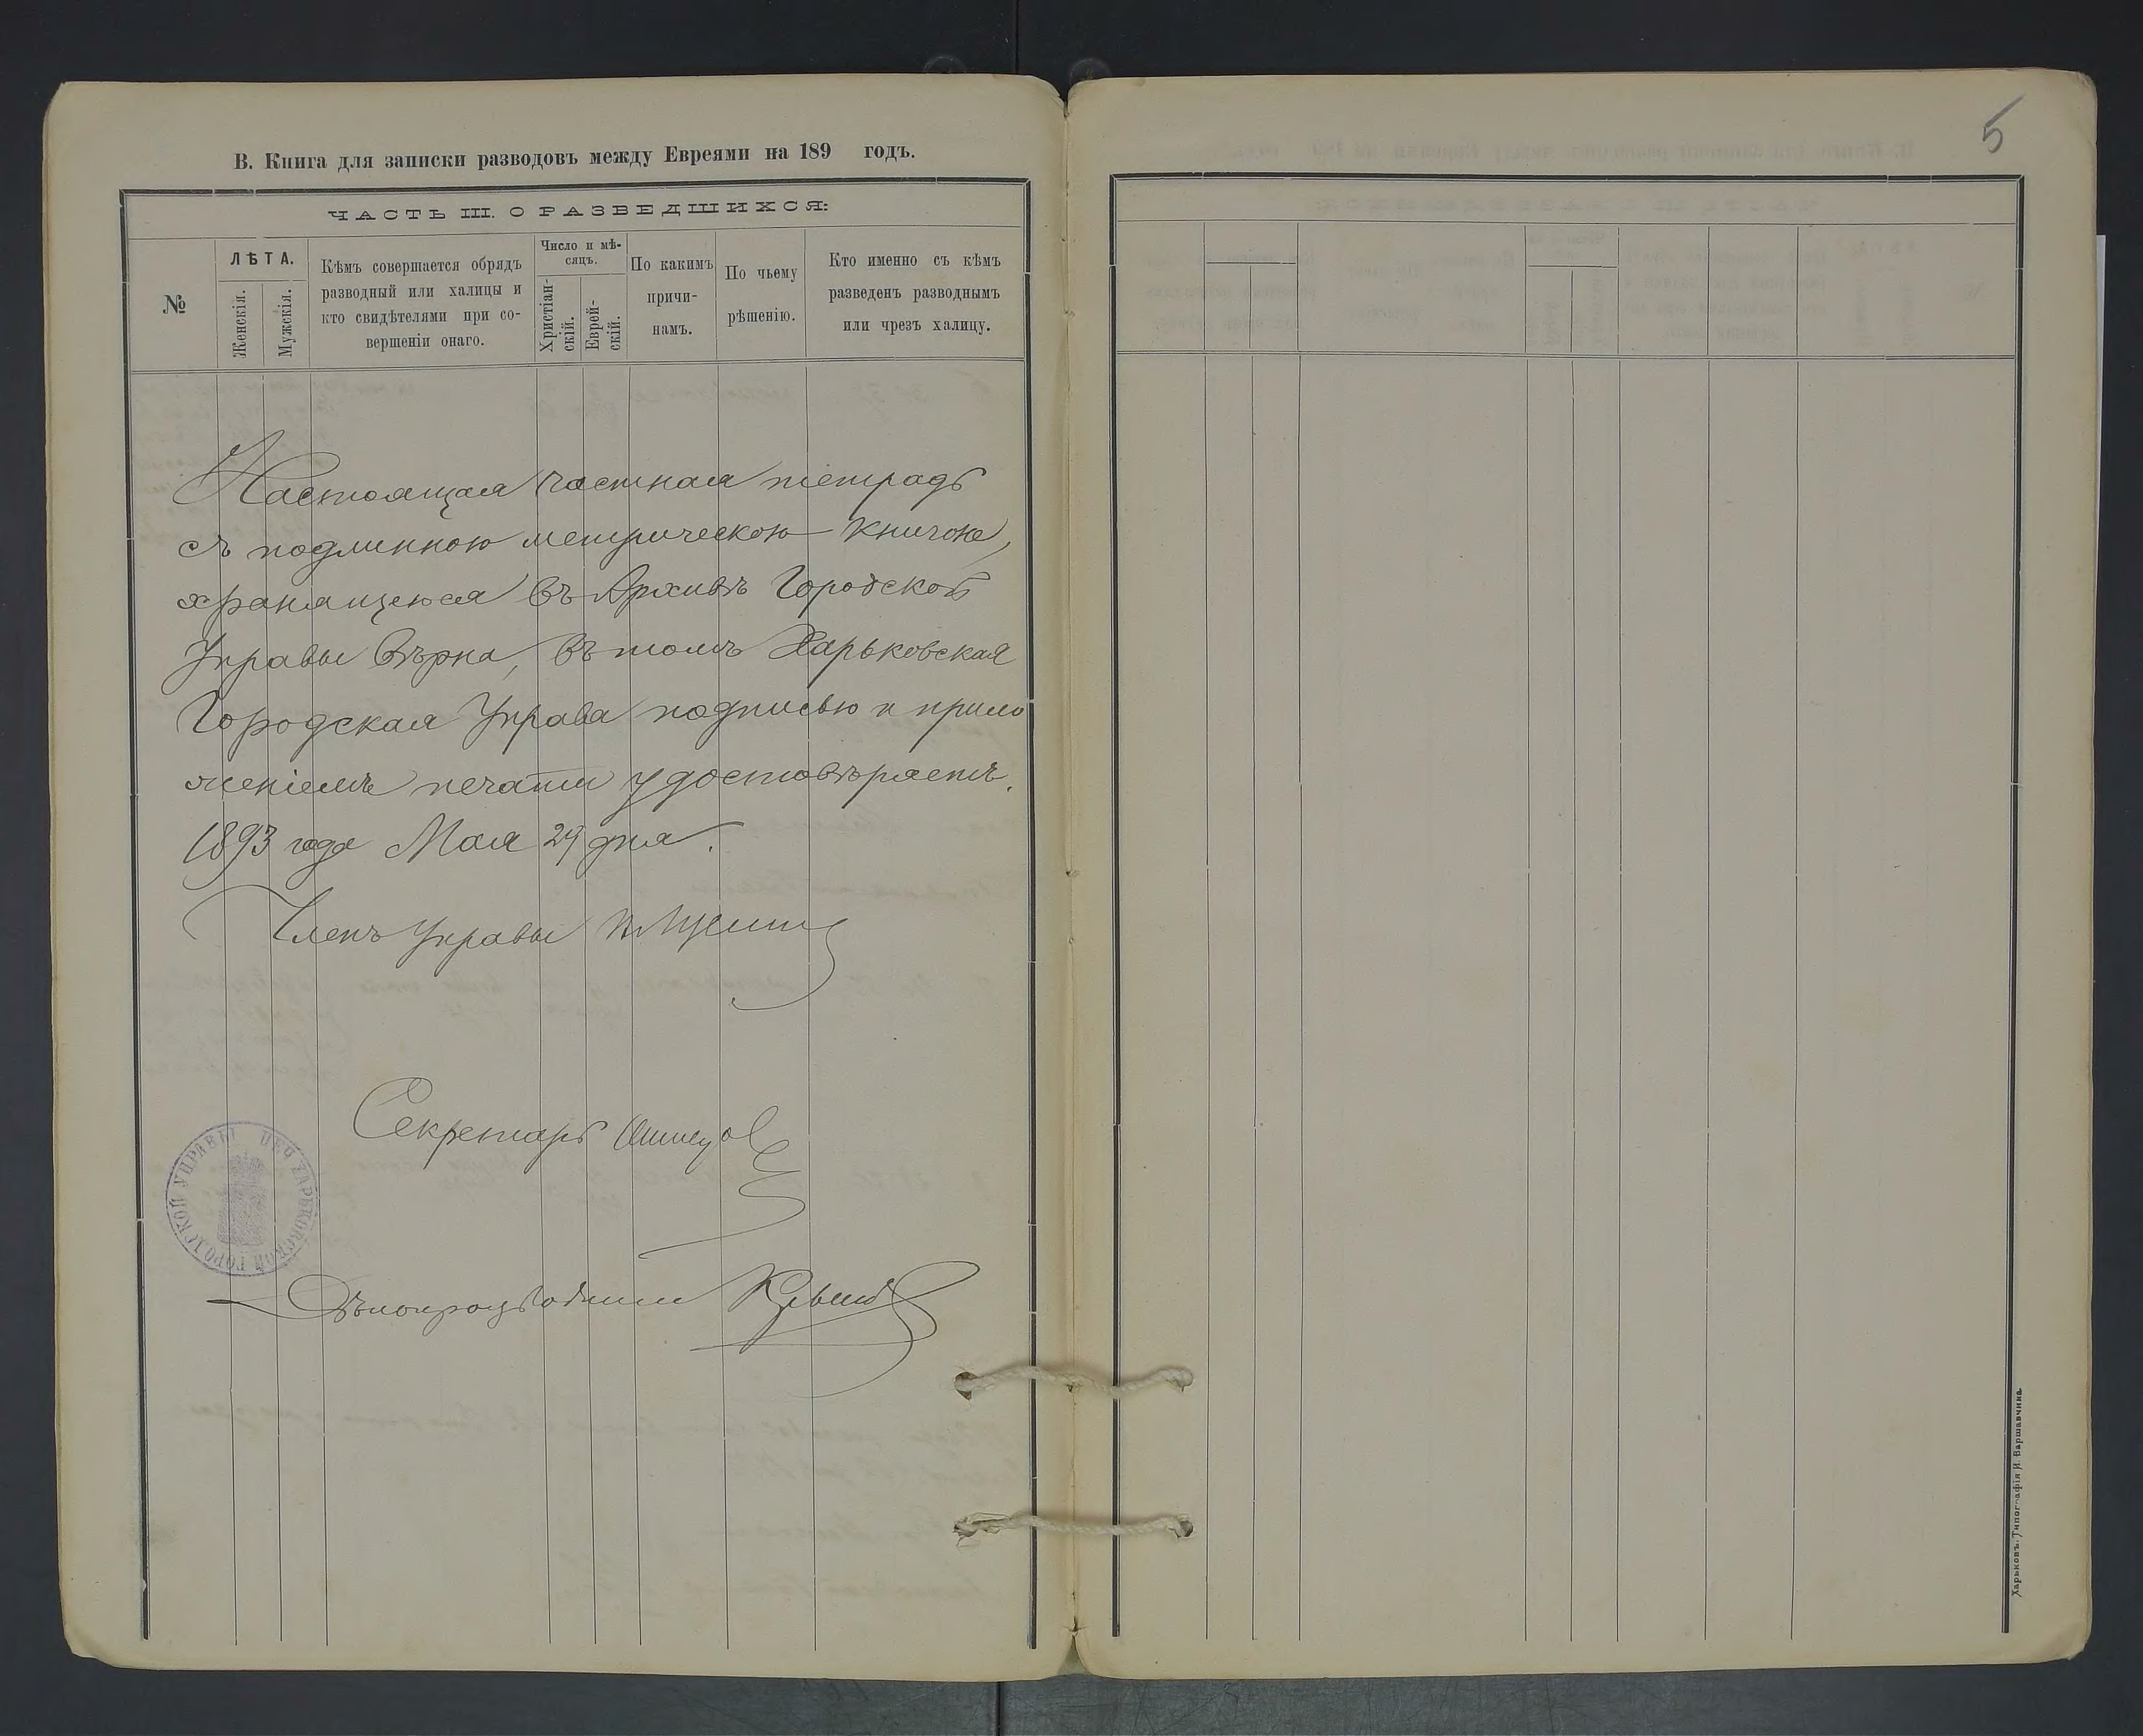 5
В. Книга для записки разводовъ между Евреями на 189 годъ.
ЧАСТЬ III. О РАЗВЕДШИХСЯ:
№
ЛѢТА.
Женскія.
Мужскія.
Кѣмъ совершается обрядъ
разводный или халицы и
кто свидѣтелями при со-
вершеніи онаго.
Число и мѣ-
сяцъ.
Христіан-
скій.
Еврей-
скій.
По какимъ
причи-
намъ.
По чьему
рѣшенію.
Кто именно съ кѣмъ
разведенъ разводнымъ
или чрезъ халицу.
Настоящая частная тетрадь
съ подлинною метрическою книгою,
хранящеюся въ Архивѣ Городской
Управы вѣрна, въ томъ Харьковская
Городская Управа подписью и прило
женіемъ печати удостовѣряетъ.
1893 года Мая 29 дня.
Членъ Управы
Секретарь
Дѣлопроизводитель
ПЕЧ. ХАРЬКОВСКОЙ ГОРОДСКОЙ УПРАВЫ
Харьковъ. Типографія И. Варшавчика.